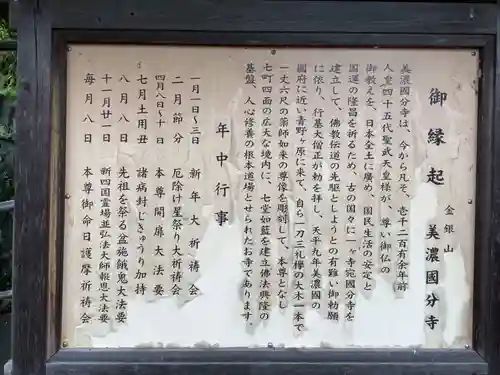 御縁起
金銀山
美濃國分寺
美濃國分寺は、今から凡そ、壱千二百有余年前
人皇四十五代聖武天皇様が、尊い御仏の
御教えを、日本全土に廣め、国民生活の安定と
国運の隆昌を祈るため、古の国々に一ヶ寺宛國分寺を
建立して、佛教伝道の先駆としようとの有難い御勅願
に依り、行基大僧正が勅を拝し、天平九年美濃國の
國府に近い青野ヶ原に来て、自ら一刀三礼欅の大木一本で
一丈六尺の薬師如来の尊像を彫刻して、本尊となし
七町四面の広大な境内に、七堂伽藍を建立佛法興隆の
基盤、人心修養の根本道場とせられたお寺であります。
年中行事
一月一日〜三日 新年大祈祷会
二月節分 厄除け星祭り大祈祷会
四月八日〜十日 本尊開扉大法要
七月土用丑 諸病封じきゅうり加持
八月八日 先祖を祭る盆施餓鬼大法要
十一月廿一日 新四国霊場並弘法大師報恩大法要
毎月八日 本尊御命日護摩祈祷会